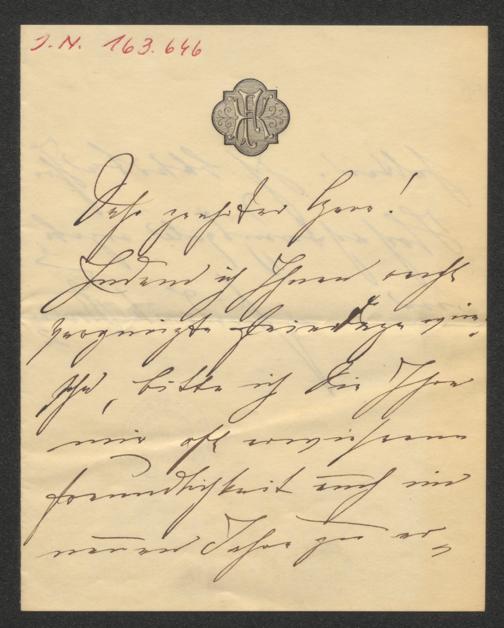 J. N. 163.646
Sehr geehrter Herr!
Indem ich Ihnen recht
vergnügte Feiertage wün-
sche, bitte ich Sie Ihre
mir oft erwiesene
Freundlichkeit auch im
neuen Jahre zu er-